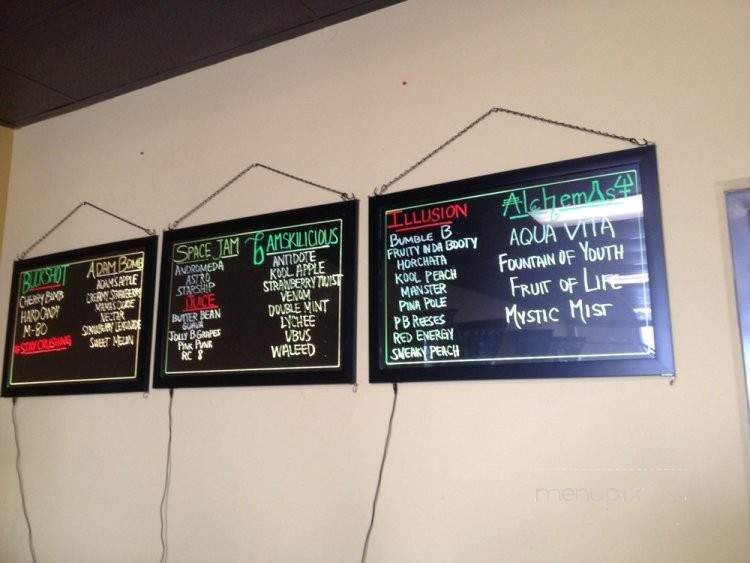 BUCKSHOT
CHERRY BOMB
HARD CANDY
M-80
#STAYCRUSHING
ADAM BOMB
ADAMS APPLE
CREAMY STRAWBERRY
NECTAR
STRAWBERRY LEMONADE
SWEET MELON
SPACE JAM
ANDROMEDA
ASTRO
STARSHIP
JUICE
BUTTER BEAN
GUAVA
JOLLY B GRAPES
PINK PUNK
RC 8
GAMSKILICIOUS
ANTIDOTE
KOOL APPLE
STRAWBERRY TWIST
VENOM
DOUBLE MINT
LYCHEE
VBUS
WALEED
ILLUSION
BUMBLE B
FRUITY IN DA BOOTY
HORCHATA
KOOL PEACH
MANSTER
PINA POLE
PB REESES
RED ENERGY
SNEAKY PEACH
AlchemAst
AQUA VITA
FOUNTAIN OF YOUTH
FRUIT OF LIFE
MYSTIC MIST
menupix